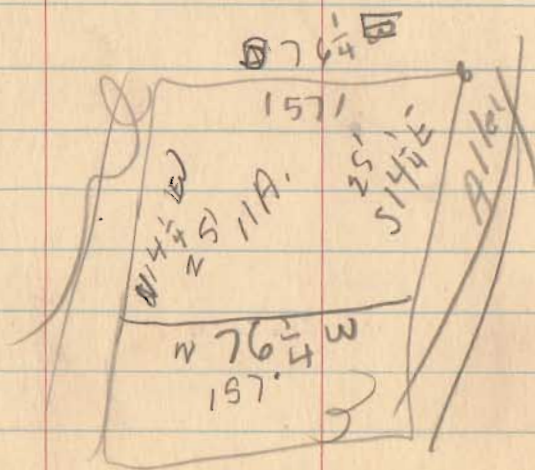 76 1/4
157'
N 14 1/4 W
25'
11 A.
25'
S 14 1/4 E
Alley
N 76 1/4 W
157'